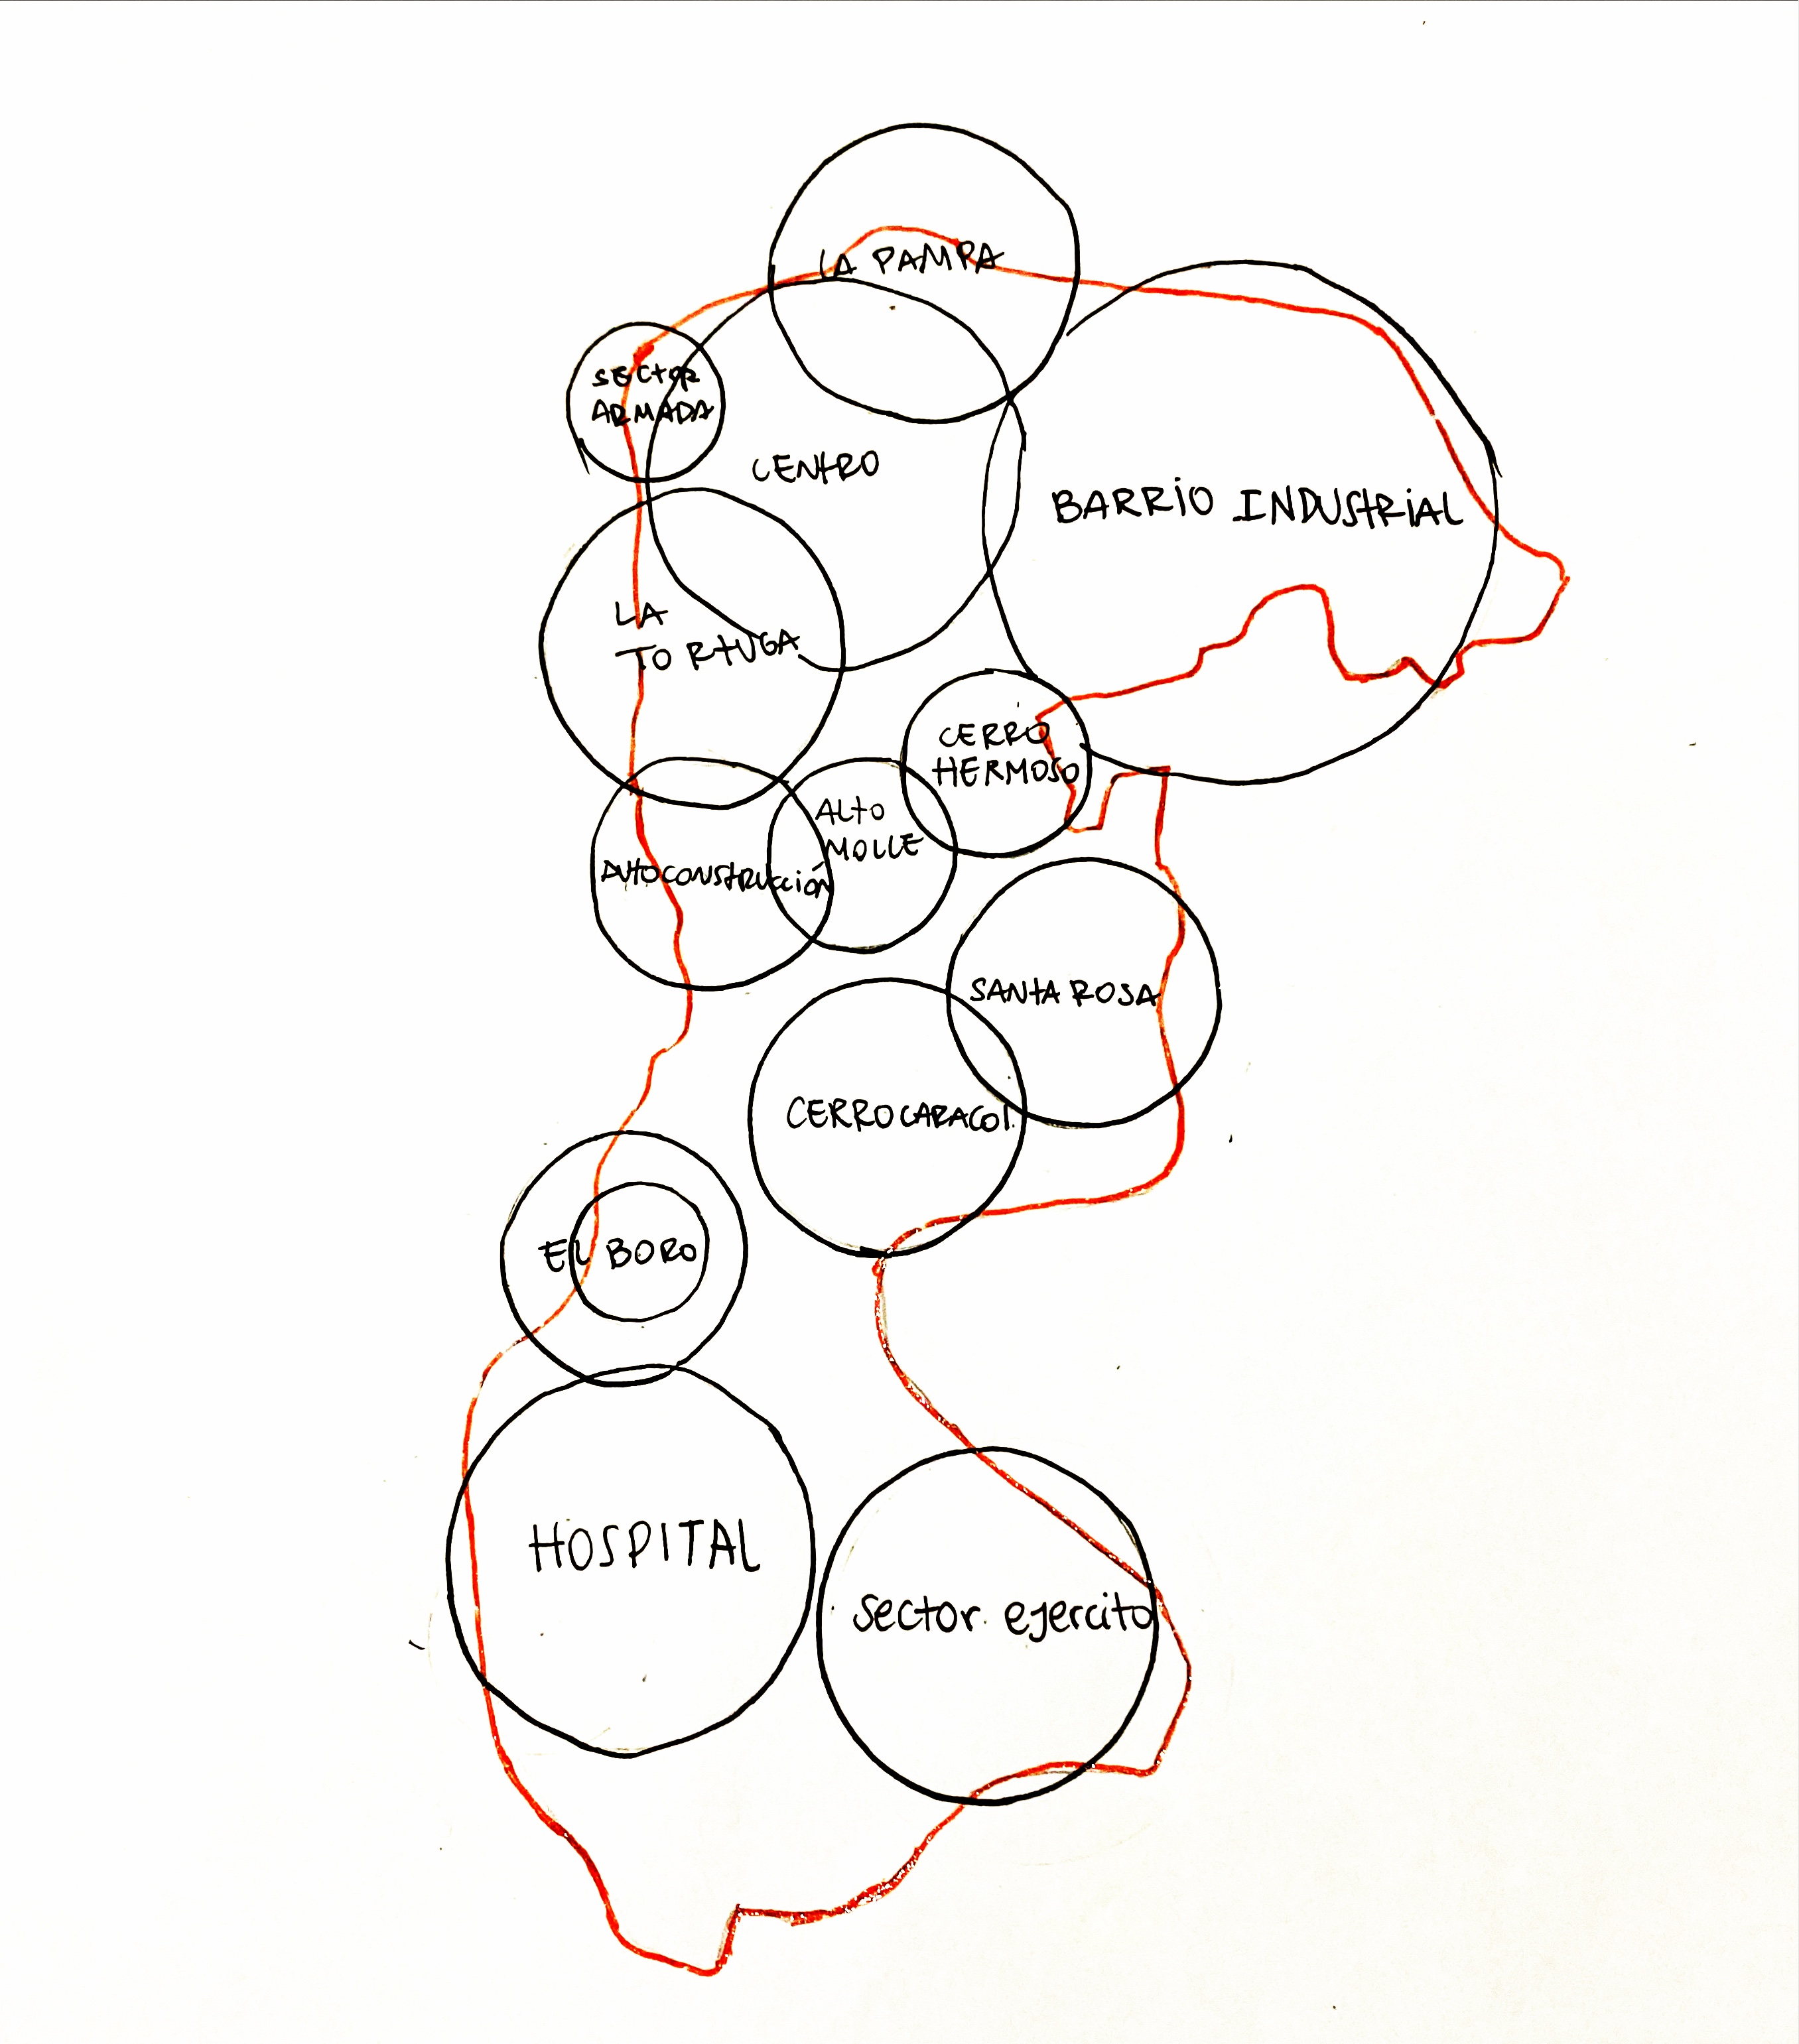 LA PAMPA
SECTOR
ARMADA
CENTRO
BARRIO INDUSTRIAL
LA
TORTUGA
CERRO
HERMOSO
ALTO
MOLLE
AUTOCONSTRUCCIÓN
SANTA ROSA
CERRO CARACOL
EL BORO
HOSPITAL
sector ejercito